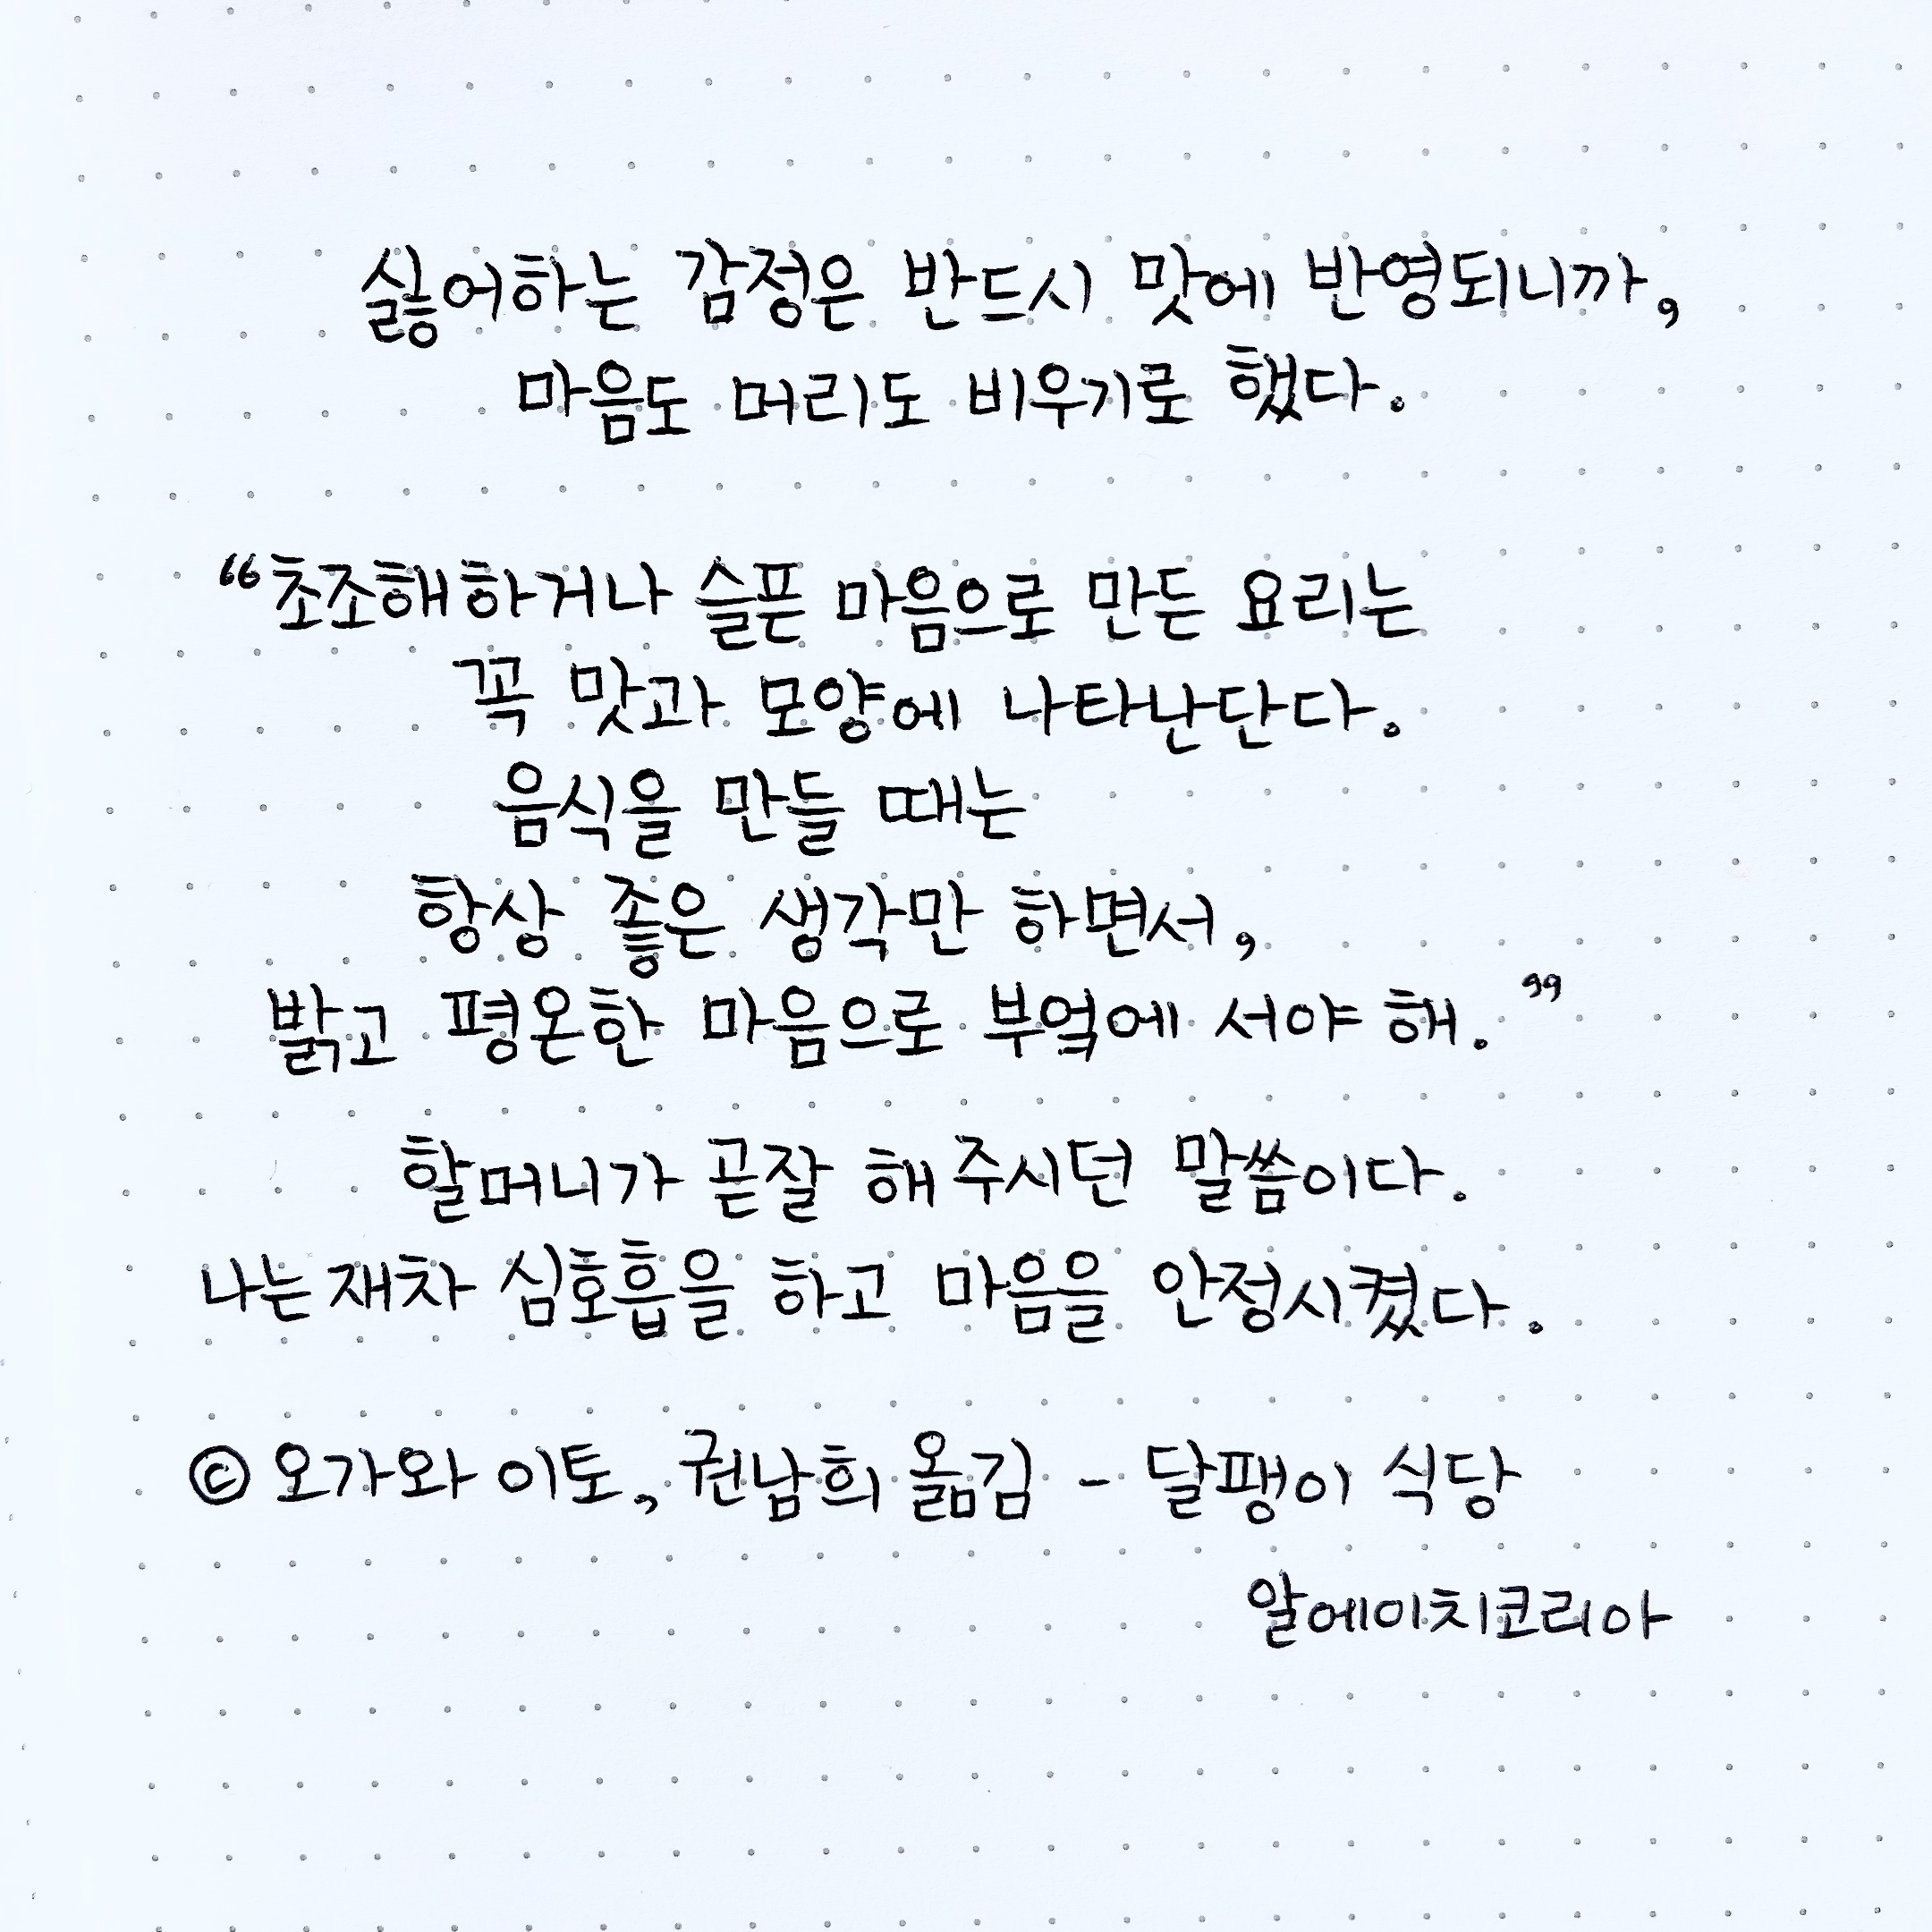 싫어하는 감정은 반드시 맛에 반영되니까,
마음도 머리도 비우기로 했다.
“초조해하거나 슬픈 마음으로 만든 요리는
꼭 맛과 모양에 나타난단다.
음식을 만들 때는
항상 좋은 생각만 하면서,
밝고 평온한 마음으로 부엌에 서야 해.”
할머니가 곧잘 해주시던 말씀이다.
나는 재차 심호흡을 하고 마음을 안정시켰다.
© 오가와 이토, 권남희 옮김 - 달팽이 식당
알에이치코리아